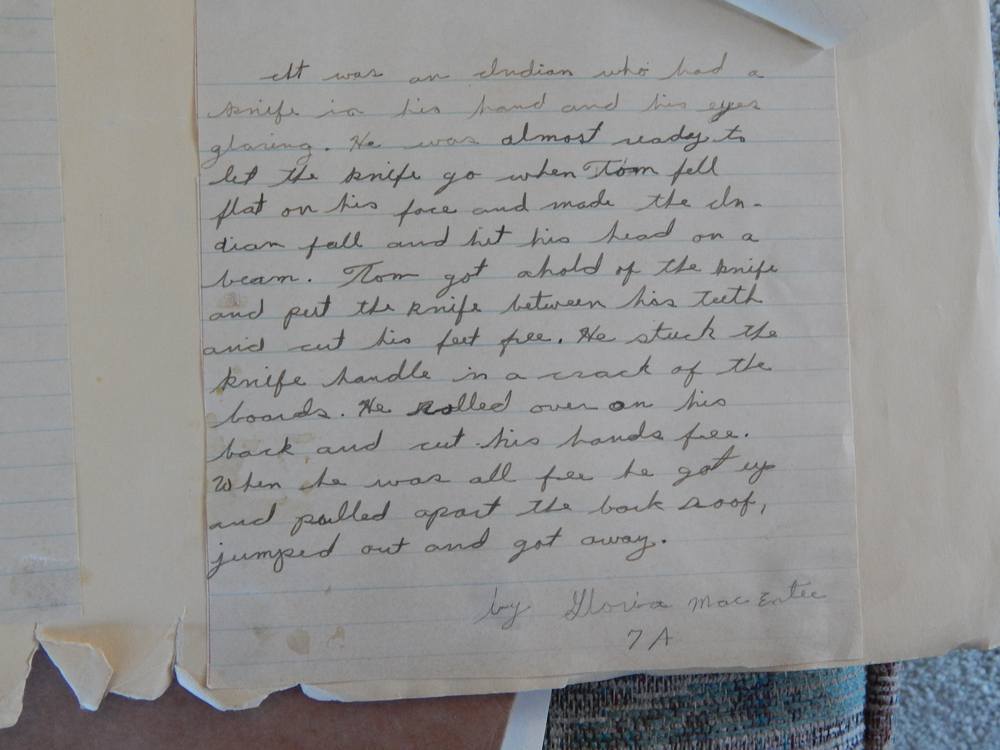 It was an Indian who had a
knife in his hand and his eyes
glaring. He was almost ready to
let the knife go when Tom fell
flat on his face and made the In-
dian fall and hit his head on a
beam. Tom got ahold of the knife
and put the knife between his teeth
and cut his feet free. He stuck the
knife handle in a crack of the
boards. He rolled over on his
back and cut his hands free.
When he was all free he got up
and pulled apart the bark roof,
jumped out and got away.
by Gloria MacEntee
7A